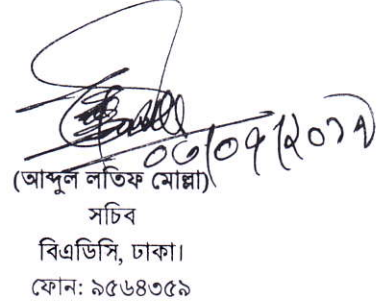 ০৩/০৭/২০১৭
(আব্দুল লতিফ মোল্লা)
সচিব
বিএডিসি, ঢাকা।
ফোন: ৯৫৬৪৩৫৯